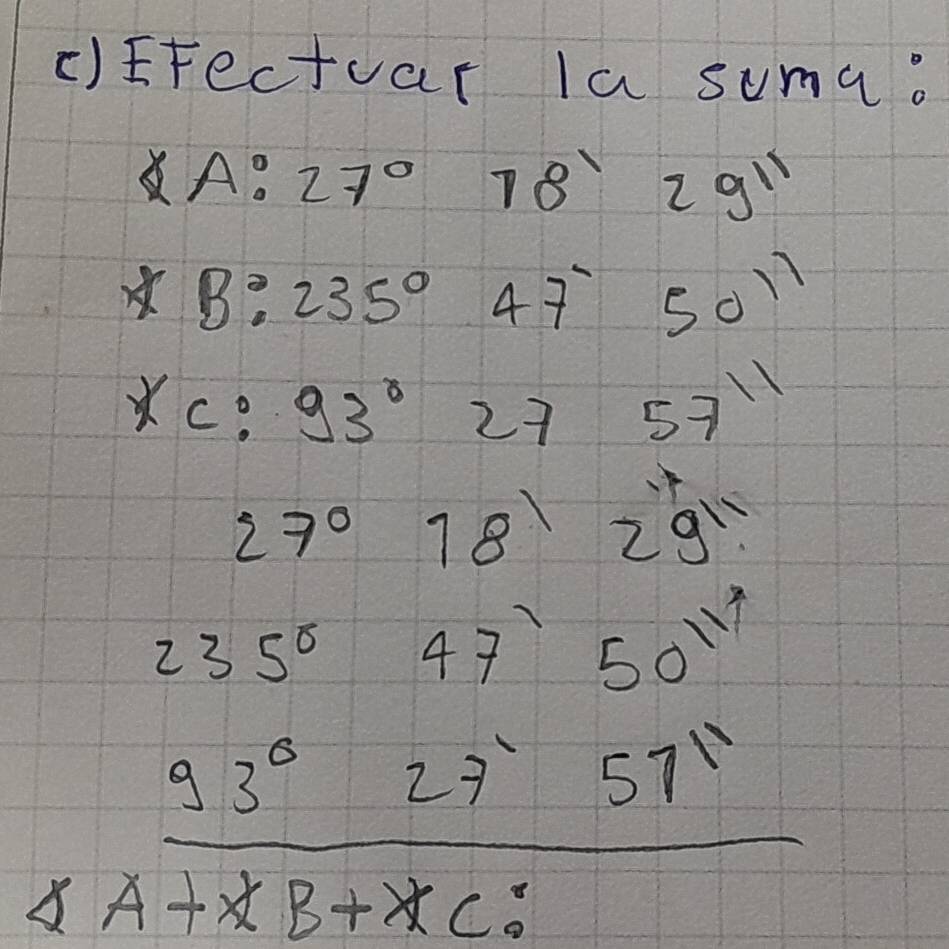 c) Efectuar la suma:
∢ A: 27° 18' 29''
∢ B: 235° 47' 50''
∢ C: 93° 27 57''
27° 18' 29''
235° 47' 50''
93° 27' 57''
∢ A + ∢ B + ∢ C: